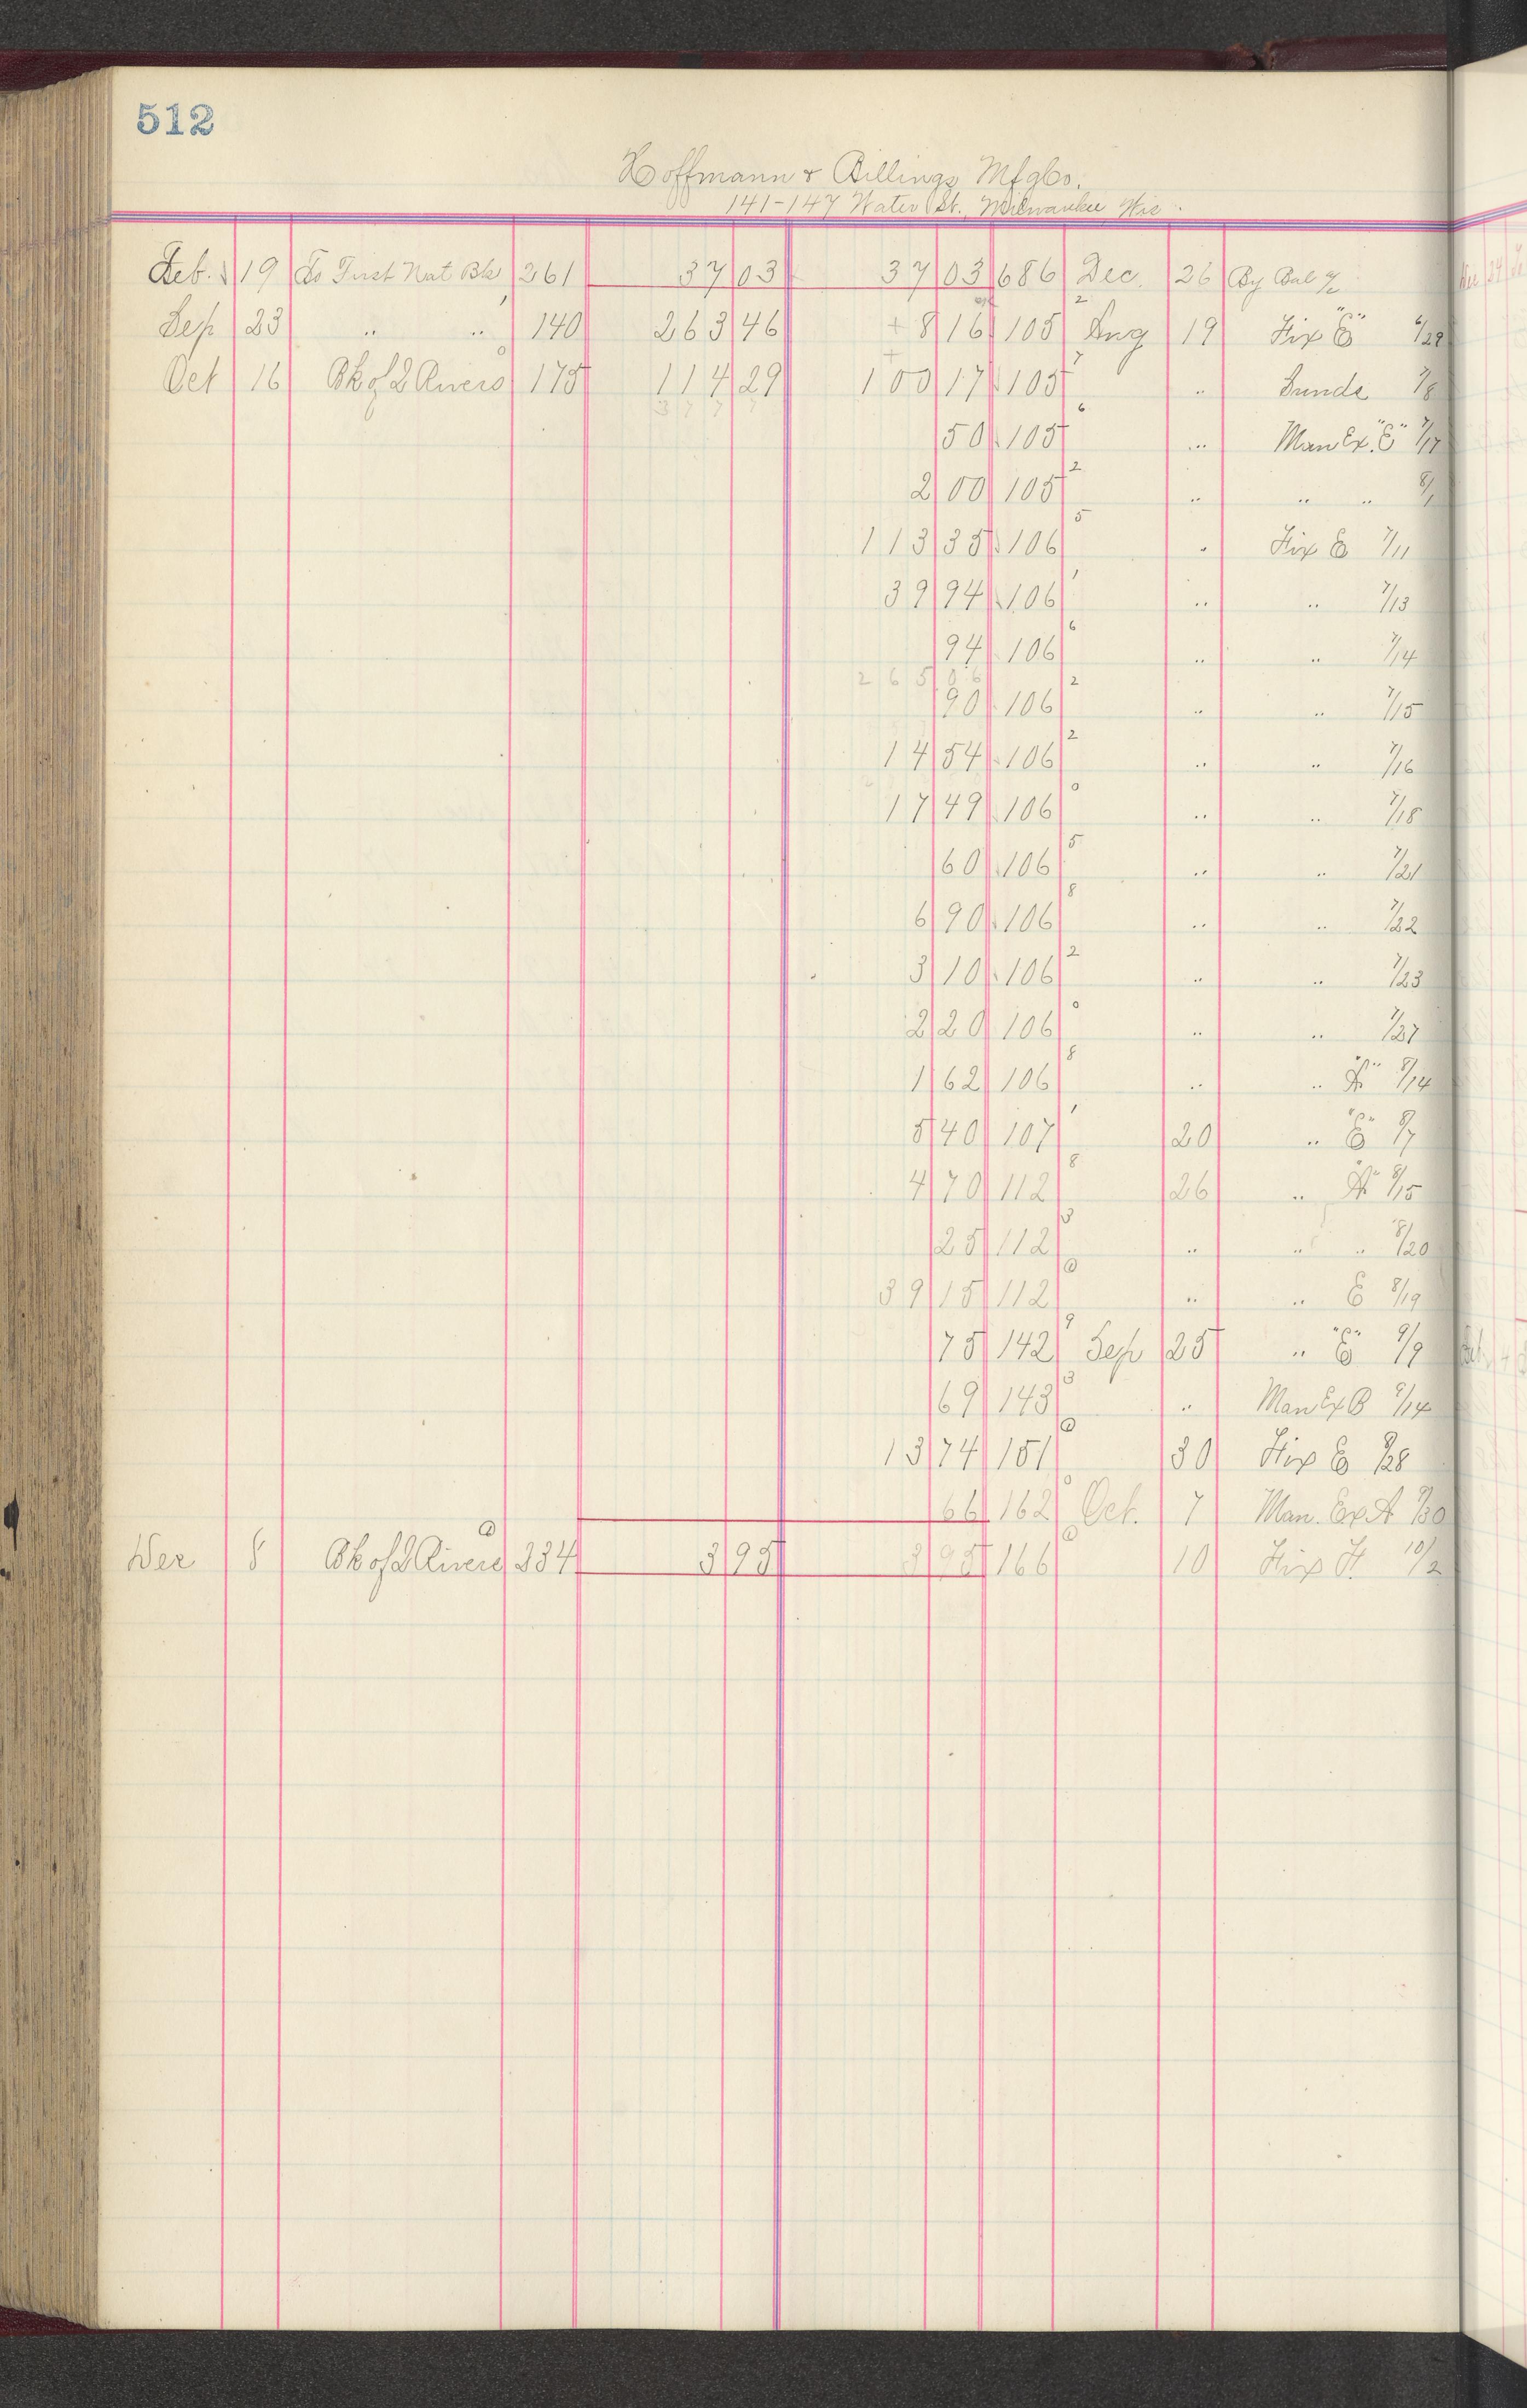 512
Hoffmann & Billings Mfg Co.
141-147 Water St. Milwaukee Wis.
Feb. 19 To First Nat Bk 261 37 03 37 03 686 Dec. 26 By Bal a/c
Sep 23 " " 140 263 46 + 8 16 105 2 Aug 19 Fix "E" 6/29
Oct 16 Bk of 2 Rivers 175 114 29 100 17 105 7 " Sunds 7/8
50 105 6 " Man Ex. "E" 7/17
2 00 105 2 " " " 8/1
113 35 106 5 " Fix E 7/11
39 94 106 1 " " 7/13
94 106 6 " " 7/14
265 06
90 106 2 " " 7/15
14 54 106 2 " " 7/16
17 49 106 0 " " 7/18
60 106 5 " " 7/21
6 90 106 8 " " 7/22
3 10 106 2 " " 7/23
2 20 106 0 " " 7/27
1 62 106 8 " " "A" 8/14
5 40 107 1 20 " "E" 8/7
4 70 112 8 26 " "A" 8/15
25 112 3 " " " 8/20
39 15 112 0 " " E 8/19
75 142 9 Sep 25 " "E" 9/9
69 143 3 " Man Ex B 9/14
13 74 151 0 30 Fix E 9/28
66 162 0 Oct. 7 Man. Ex A 9/30
Dec 8 Bk of 2 Rivers 234 3 95 3 95 166 0 10 Fix A 10/2